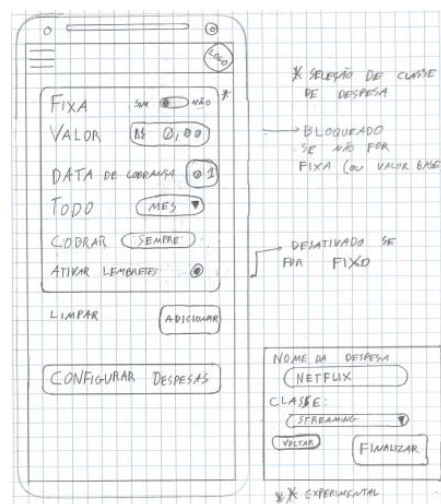 LOGO
FIXA SIM NÃO *
VALOR R$ 0,00
DATA DE COBRANÇA 01
TODO MES
COBRAR SEMPRE
ATIVAR LEMBRETES
LIMPAR ADICIONAR
CONFIGURAR DESPESAS
* SELEÇÃO DE CLASSE
DE DESPESA
BLOQUEADO
SE NÃO FOR
FIXA (OU VALOR BASE
DESATIVADO SE
FOR FIXO
NOME DA DESPESA
NETFLIX
CLASSE:
STREAMING
VOLTAR FINALIZAR
** EXPERIMENTAL